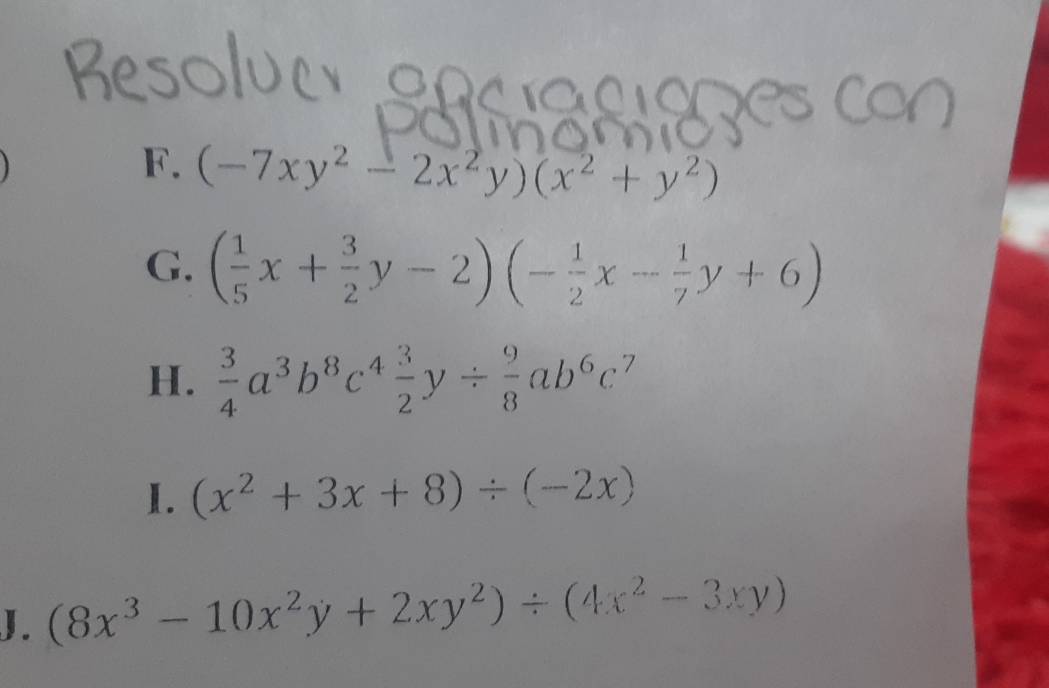 Resolver operaciones con
polinomios
)
F. (−7xy² − 2x²y)(x² + y²)
G. (1/5 x + 3/2 y − 2)(− 1/2 x − 1/7 y + 6)
H. 3/4 a³b⁸c⁴ 3/2 y ÷ 9/8 ab⁶c⁷
I. (x² + 3x + 8) ÷ (−2x)
J. (8x³ − 10x²y + 2xy²) ÷ (4x² − 3xy)